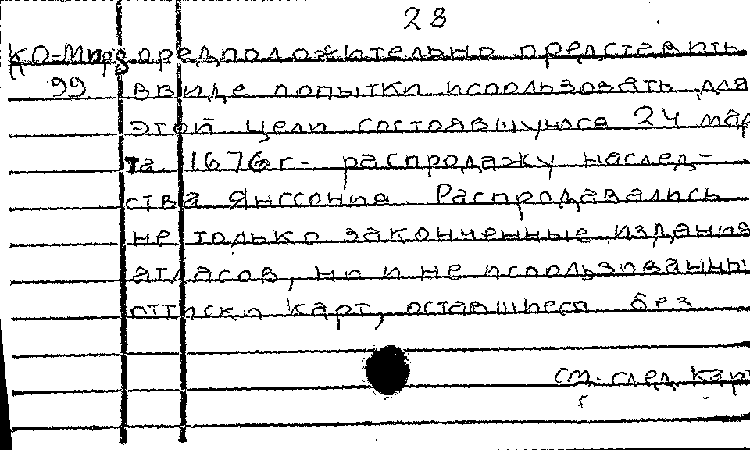 28
КО-Мпр предположительно представить
99 в виде попытки использовать для
этой цели состоявшуюся 24 мар
та 1676 г - распродажу наслед-
ства Янссониа Распродавались
не только законченные издания
атласов, но и не использованны
оттиски карт, оставшиеся без
см. след. кар